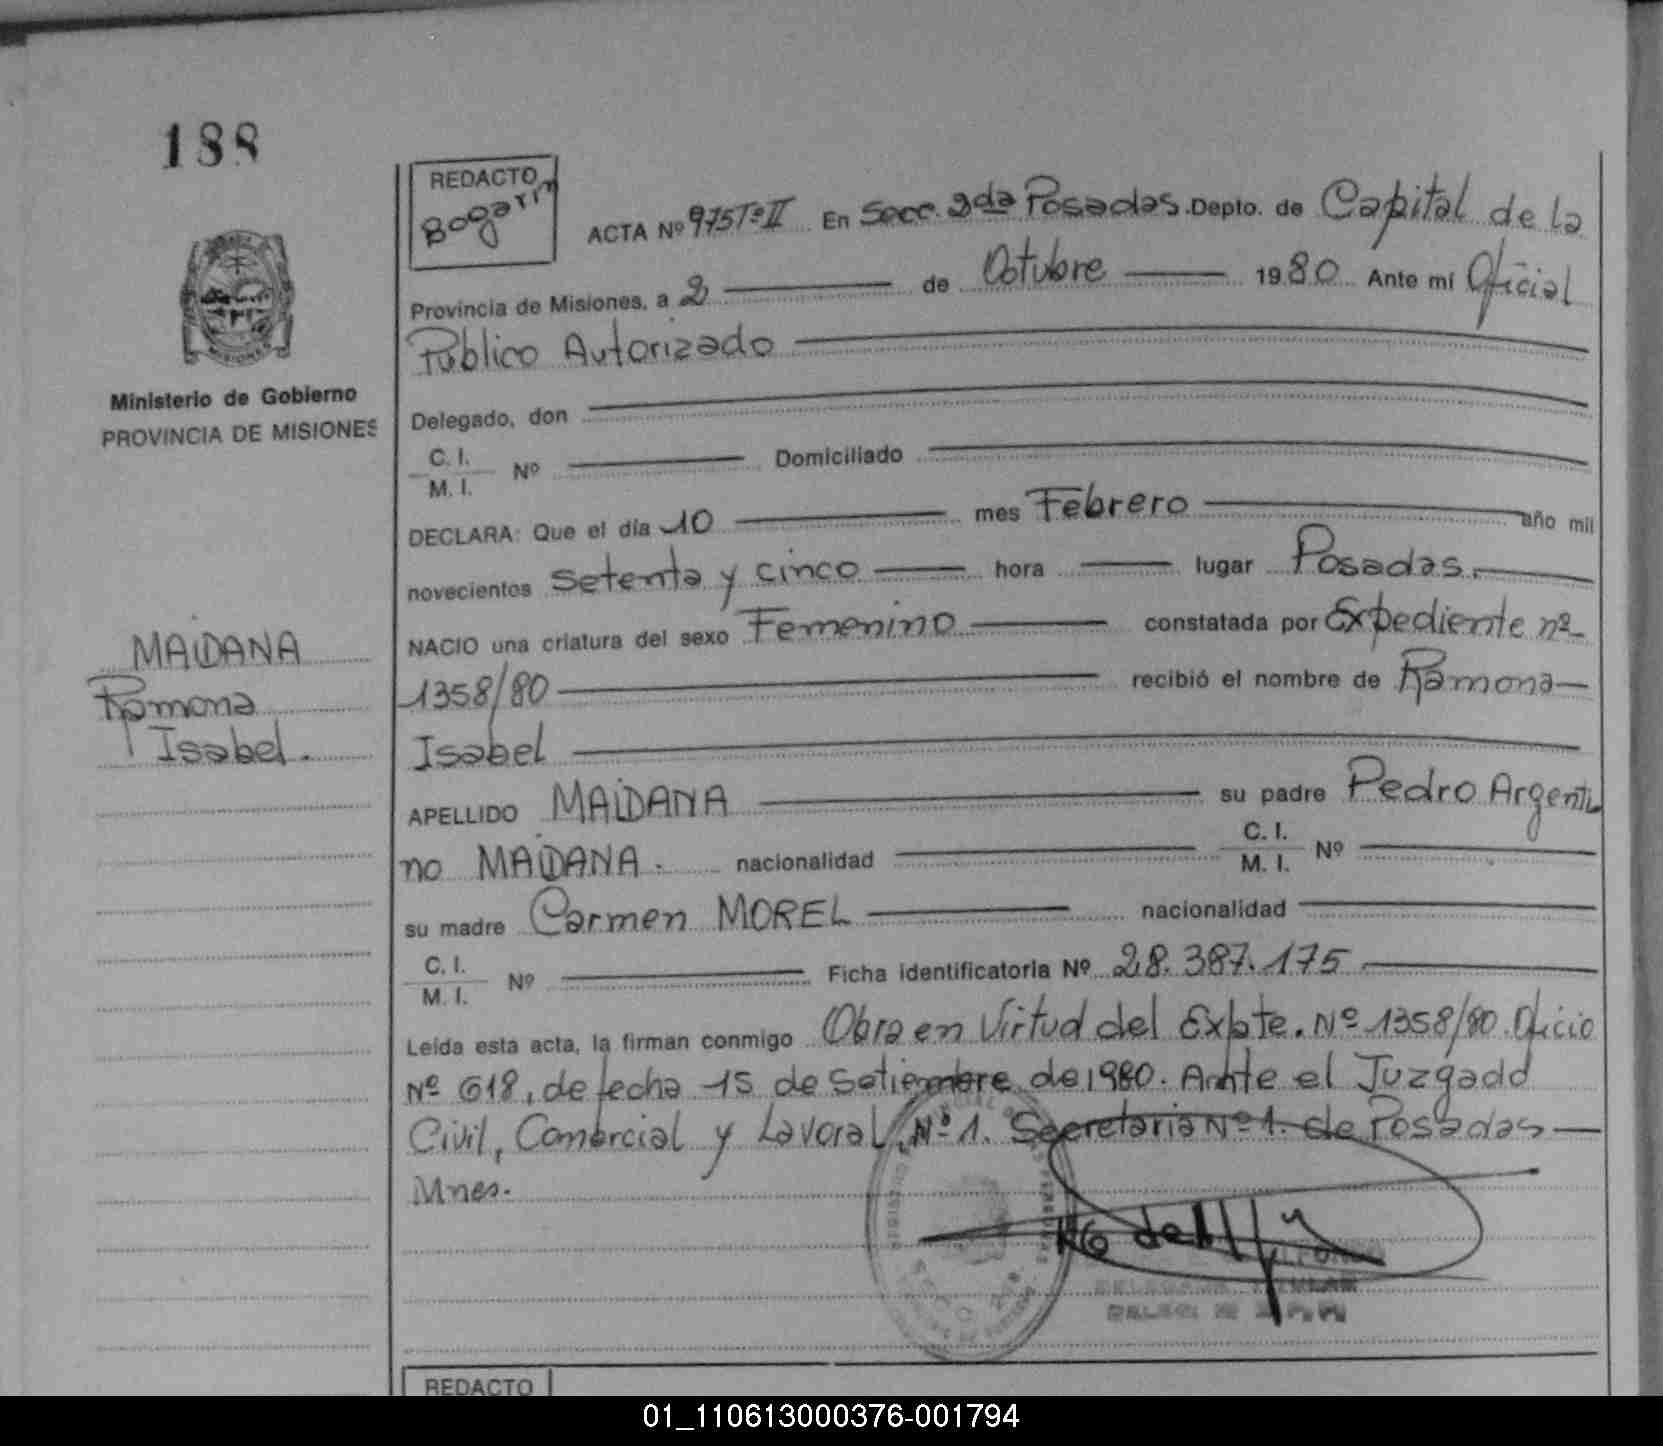 188
REDACTO
Bogarin
ACTA Nº 975 Tº II En Secc. 2da Posadas. Depto. de Capital de la
Provincia de Misiones, a 2 de Octubre 1980 Ante mi Oficial
Público Autorizado
Delegado, don
C. I.
M. I. Nº Domiciliado
DECLARA: Que el día 10 mes Febrero año mil
novecientos setenta y cinco hora lugar Posadas.
NACIO una criatura del sexo Femenino constatada por Expediente nº
1358/80 recibió el nombre de Ramona
Isabel
APELLIDO MAIDANA su padre Pedro Argenti
no MAIDANA. nacionalidad C. I. M. I. Nº
su madre Carmen MOREL nacionalidad
C. I.
M. I. Nº Ficha identificatoria Nº 28.387.175
Leída esta acta, la firman conmigo Obra en Virtud del Expte. Nº 1358/80. Oficio
Nº 618, de fecha 15 de Setiembre de 1980. Ante el Juzgado
Civil, Comercial y Lavoral, Nº 1. Secretaria Nº 1. de Posadas
Mnes.
MISIONES
Ministerio de Gobierno
PROVINCIA DE MISIONES
MAIDANA
Ramona
Isabel.
REDACTO
01_110613000376-001794